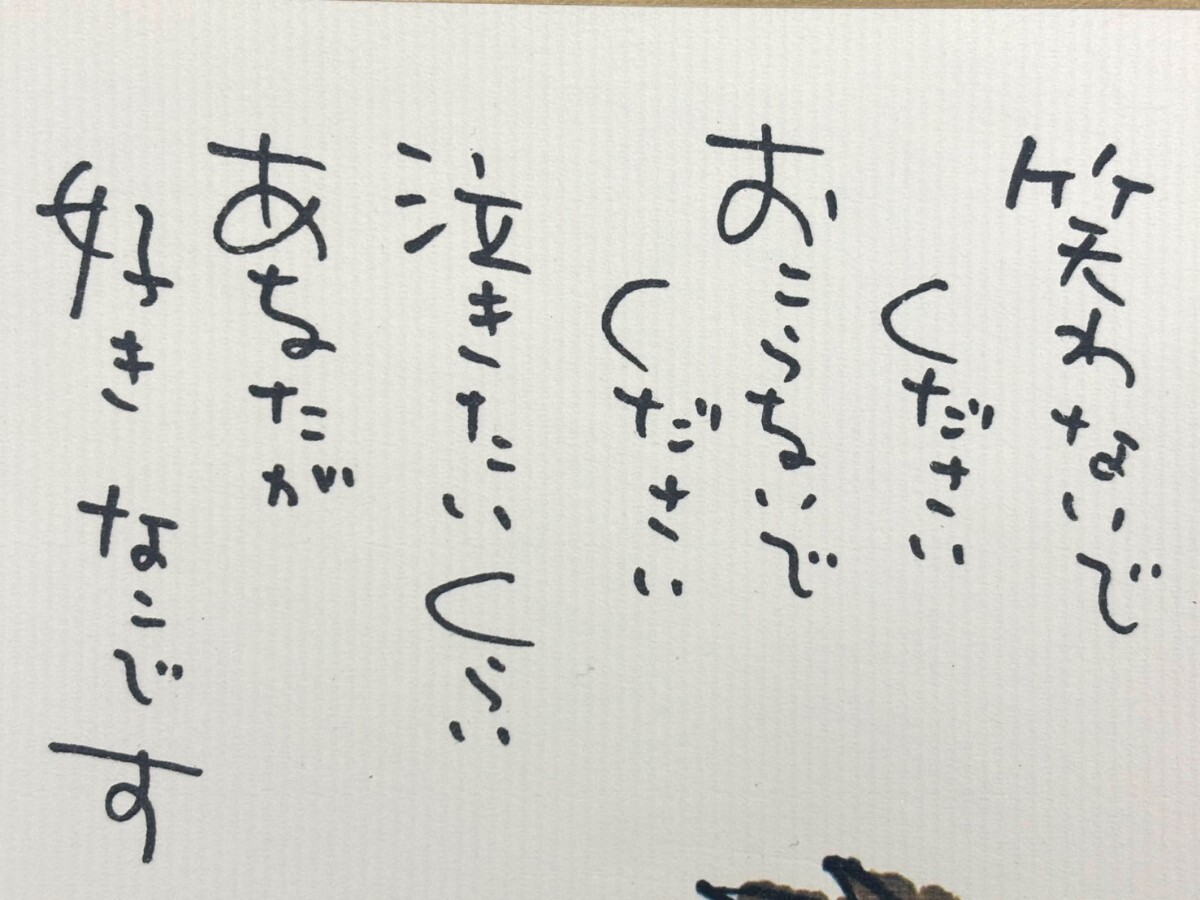 笑わないで
ください
おこらないで
ください
泣きたいくらい
あなたが
好き なこです